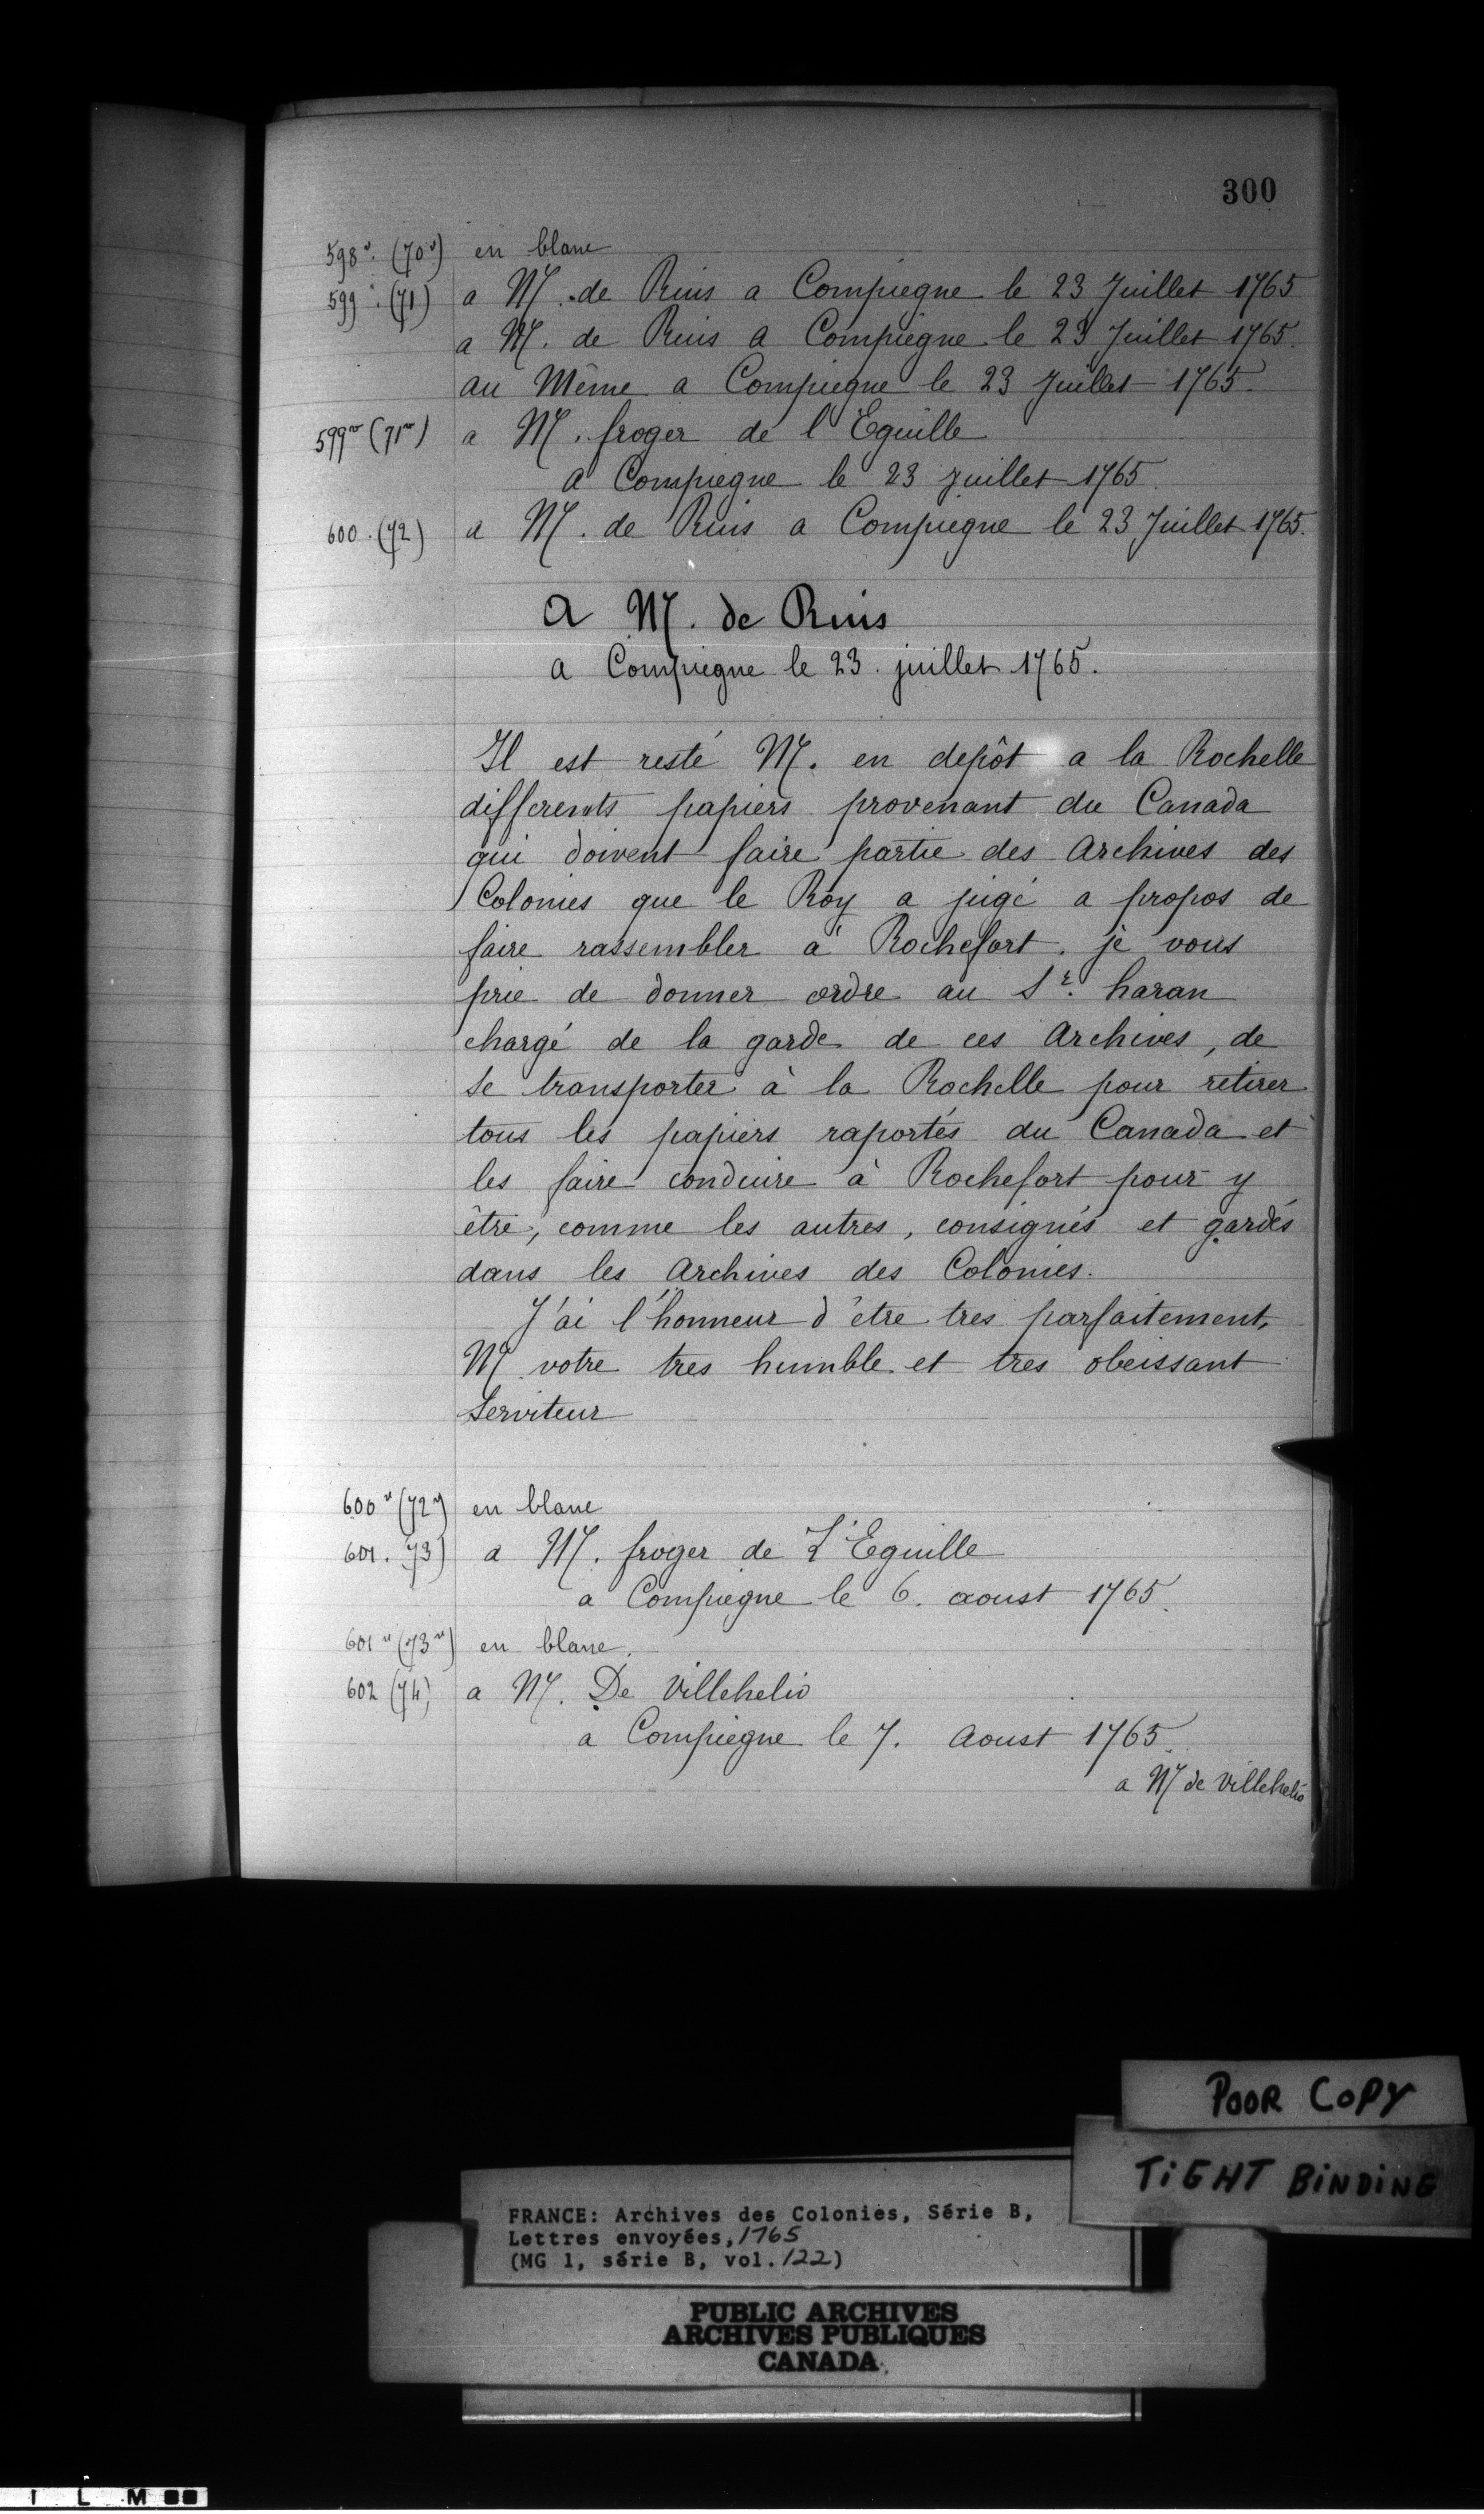 300
598v. (70v) en blanc
599. (71) a M. de Ruis a Compiegne le 23 Juillet 1765
a M. de Ruis a Compiegne le 23 Juillet 1765.
au Même a Compiegne le 23 Juillet 1765.
599vo (71vo) a M. froger de l'Eguille
a Compiegne le 23 juillet 1765.
600. (72) a M. de Ruis a Compiegne le 23 Juillet 1765.
a M. de Ruis
a Compiegne le 23. juillet 1765.
Il est resté M. en depôt a la Rochelle
differents papiers provenant du Canada
qui doivent faire partie des Archives des
Colonies que le Roy a jugé a propos de
faire rassembler a Rochefort. je vous
prie de donner ordre au Sr. haran
chargé de la garde de ces Archives, de
se transporter à la Rochelle pour retirer
tous les papiers raportés du Canada et
les faire conduire à Rochefort pour y
être, comme les autres, consignés et gardés
dans les Archives des Colonies.
J'ai l'honneur d'être tres parfaitement,
M votre tres humble et tres obeissant
Serviteur
600v (72v) en blanc
601. 73) a M. froger de L'Eguille
a Compiegne le 6. aoust 1765.
601v (73v) en blanc.
602 (74) a M. De Villehelio
a Compiegne le 7. Aoust 1765.
a M de Villehelio
POOR COPY
TIGHT BINDING
FRANCE: Archives des Colonies, Série B,
Lettres envoyées, 1765
(MG 1, série B, vol. 122)
PUBLIC ARCHIVES
ARCHIVES PUBLIQUES
CANADA
I L M